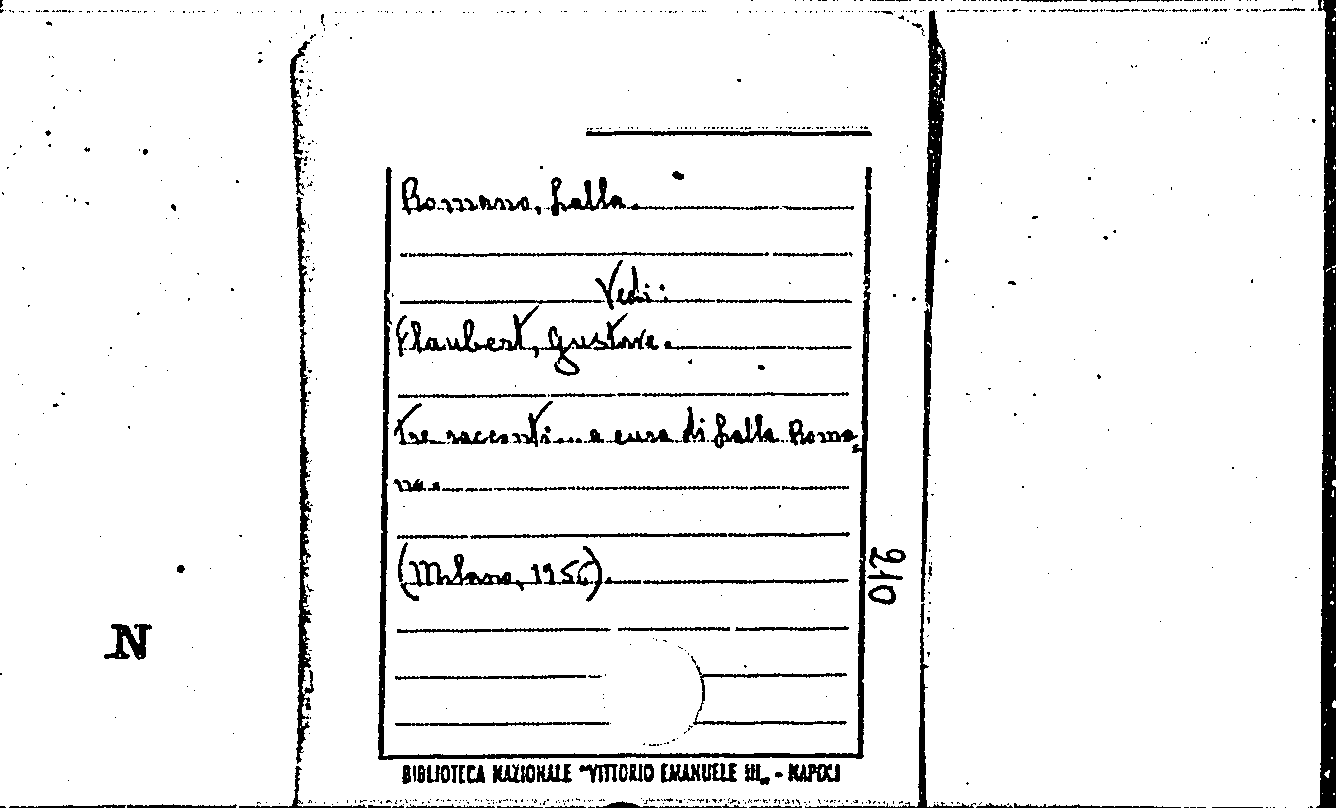 Romano, Lalla.
Vedi:
Flaubert, Gustave.
Tre racconti... a cura di Lalla Roma=
no.
(Milano, 1956).
210
N
BIBLIOTECA NAZIONALE "VITTORIO EMANUELE III" - NAPOLI